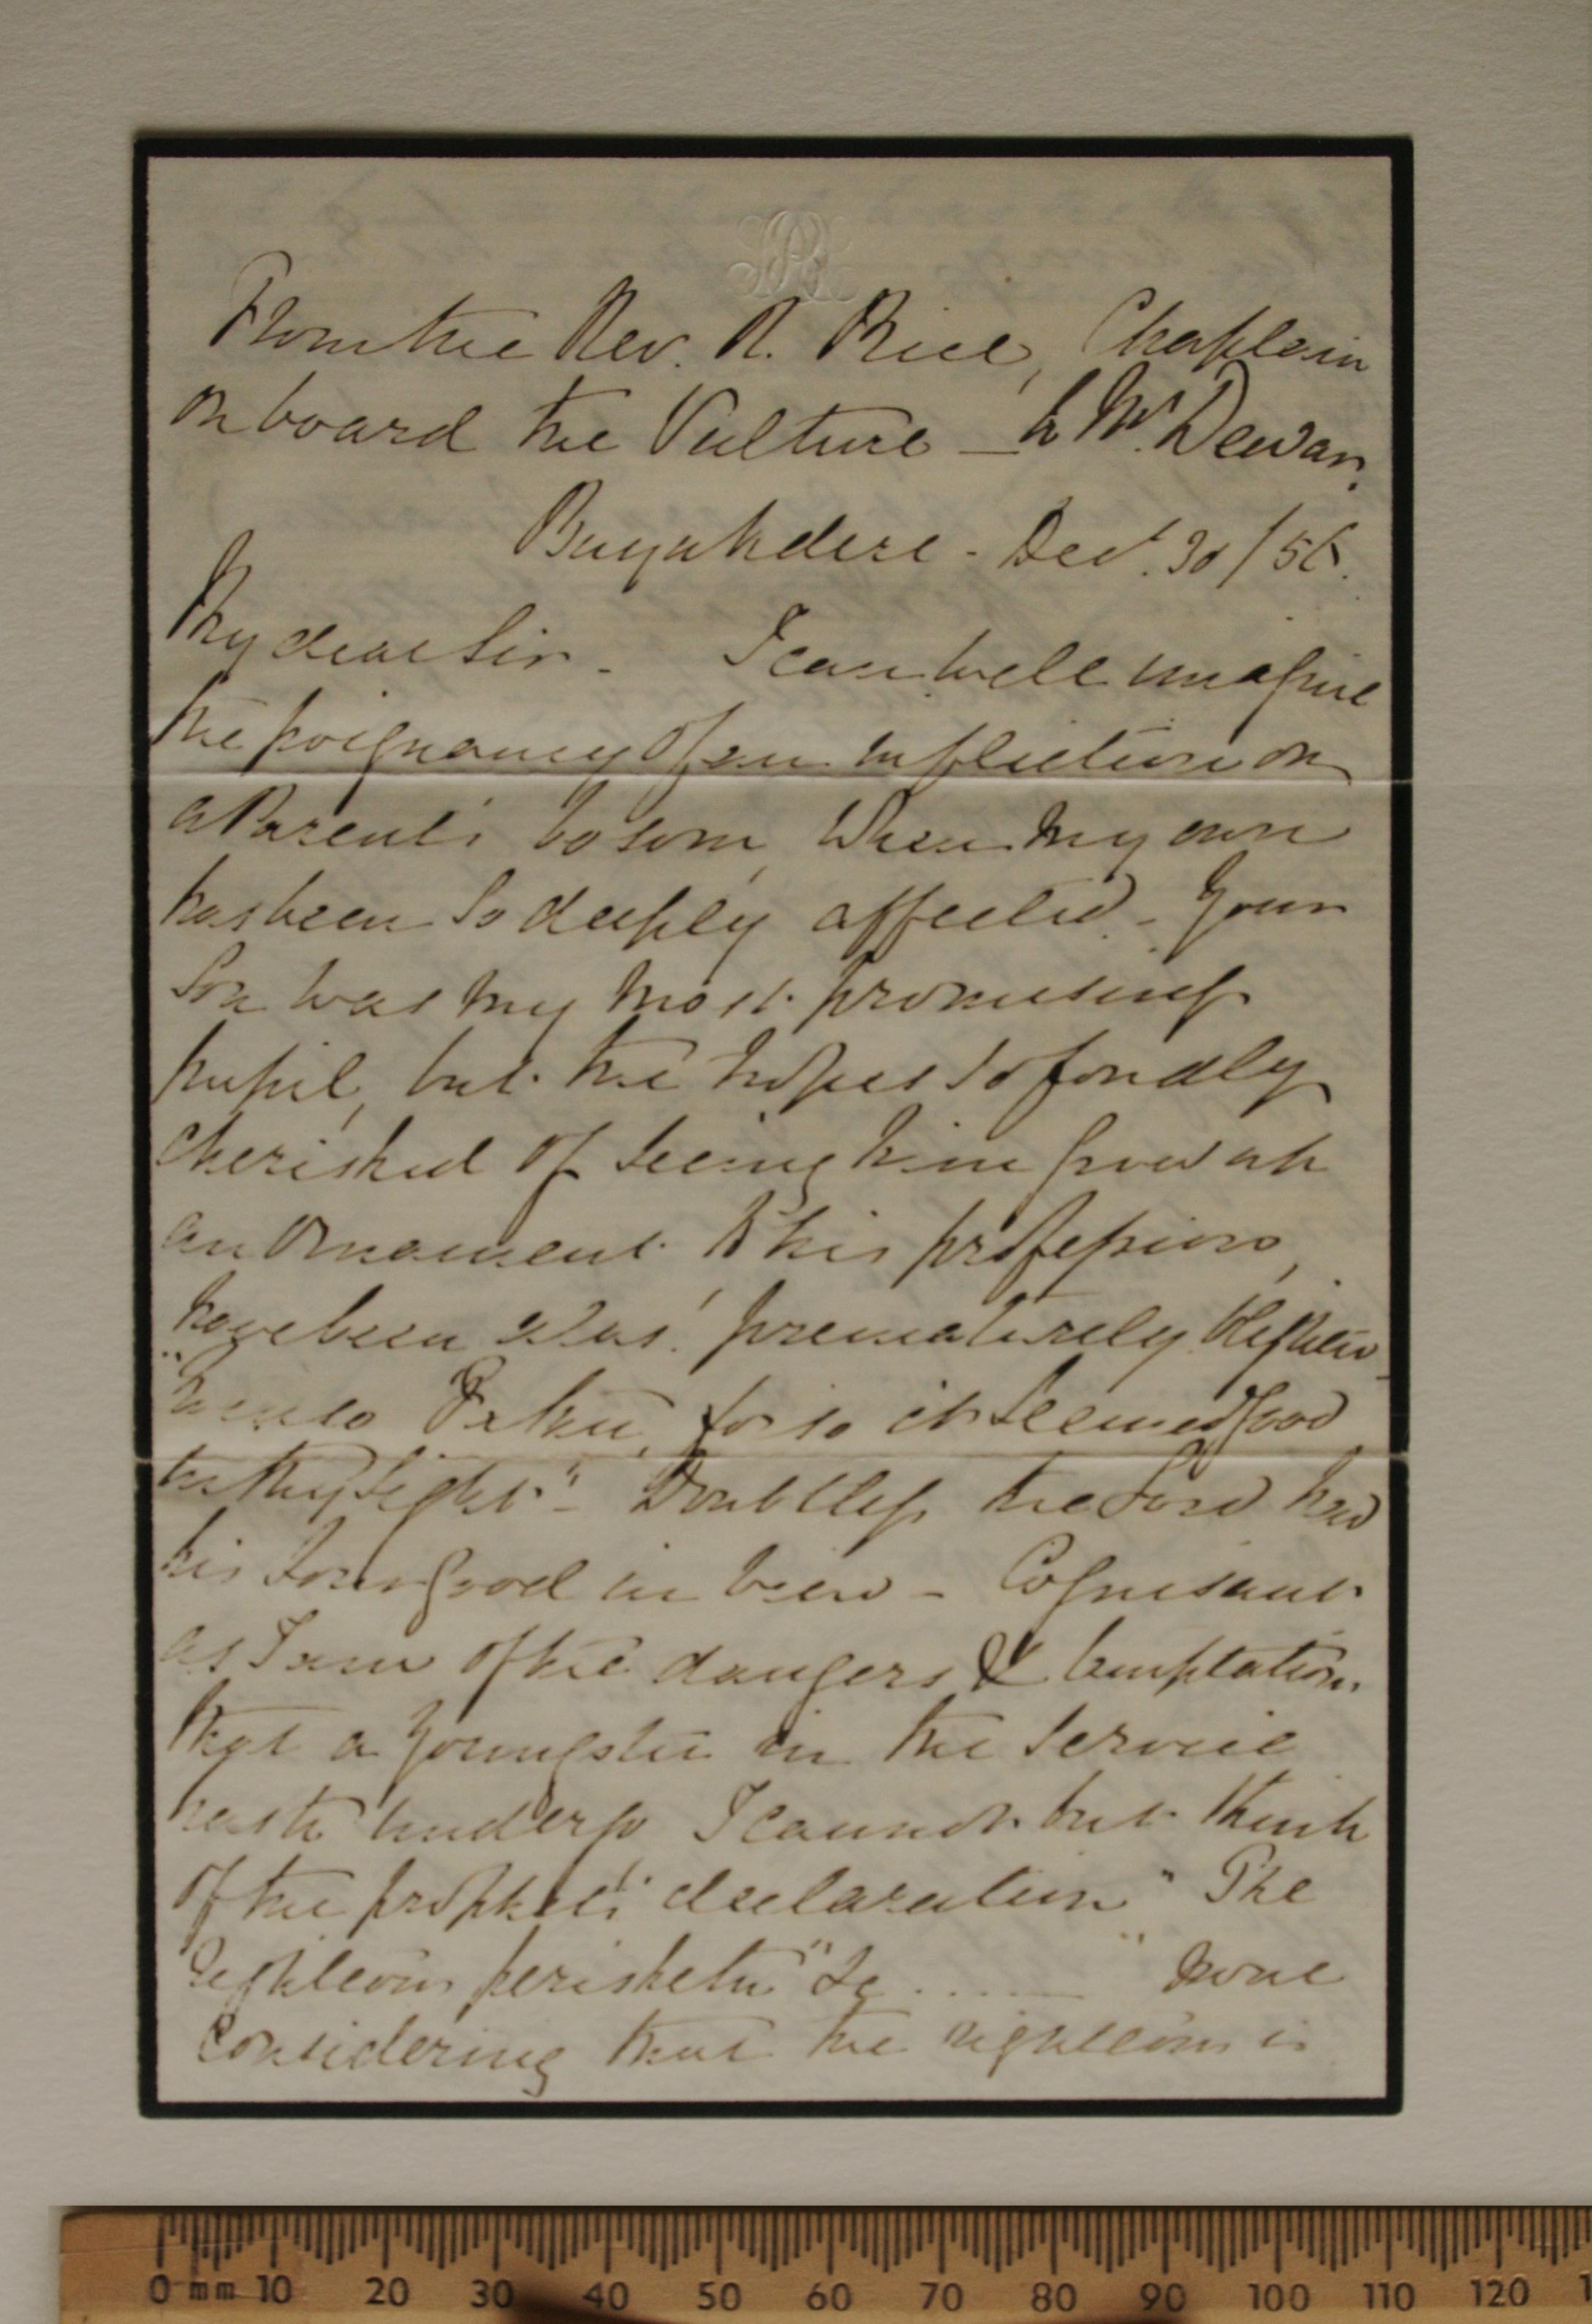 From the Rev. R. Rice, Chaplain
on board the Vulture – to Mr. Dewar.
Buyukdere - Decr. 30/56.
My dear Sir - I can well imagine
the poignancy of an infliction on
a Parent's bosom, when my own
has been so deeply affected. - Your
Son was my most promising
pupil, but the hopes so fondly
cherished of seeing him grow up
an Ornament to his profession,
have been alas! prematurely blighted -
"Father, for so it seemed good
in thy sight" - Doubtless the Lord had
his own good in view - Cognisant
as I am of the dangers & temptations
that a youngster in the Service
has to undergo I cannot but think
of the prophet's declaration "The
righteous perisheth" &c ..... " none
considering that the righteous is
0 mm 10 20 30 40 50 60 70 80 90 100 110 120